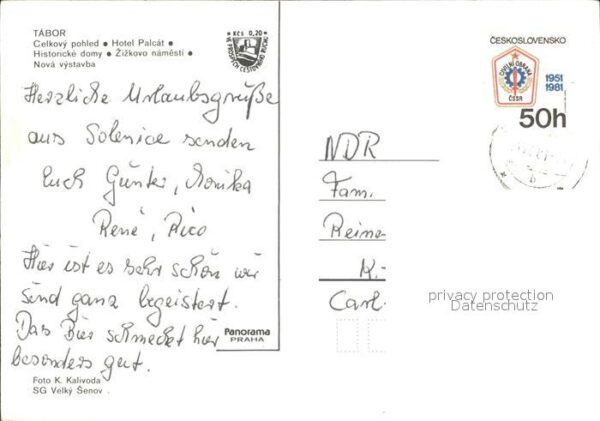 TÁBOR
Celkový pohled • Hotel Palcát •
Historické domy • Žižkovo náměstí •
Nová výstavba
Kčs 0,20
VE PROSPĚCH CESTOVNÍHO RUCHU
Herzliche Urlaubsgrüße
aus Solenice senden
Euch Günter, Monika
René, Rico
Hier ist es sehr schön wir
sind ganz begeistert.
Das Bier schmeckt hier
besonders gut.
Foto K. Kalivoda
SG Velký Šenov
Panorama
PRAHA
ČESKOSLOVENSKO
CIVILNÍ OBRANA
ČSSR
1951
1981
50h
NDR
Fam.
Reine
K.-
Carl
privacy protection
Datenschutz